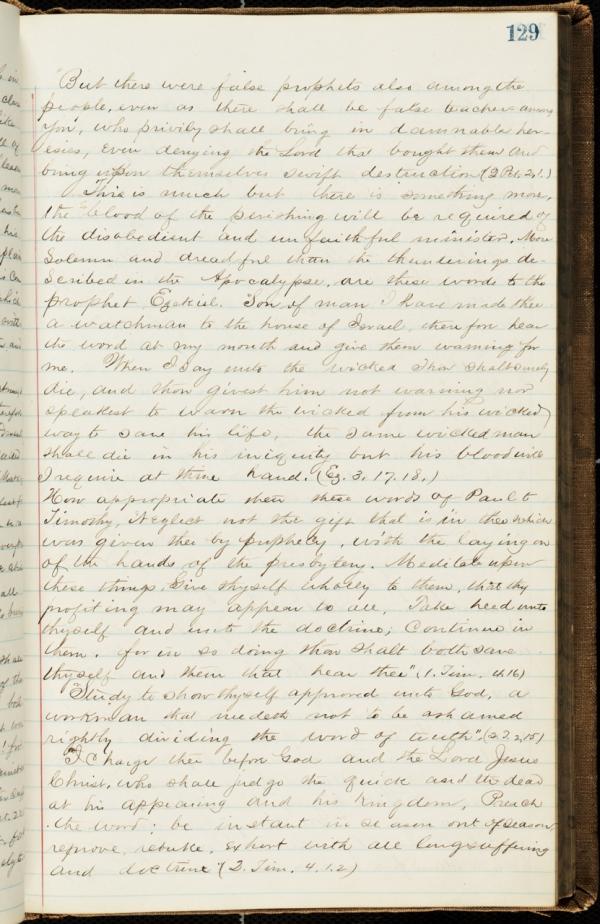 129
"But there were false prophets also among the
people, even as there shall be false teachers among
you, who privily shall bring in damnable her-
esies, even denying the Lord that bought them and
bring upon themselves swift destruction (2 Pet. 2.1.)
This is much but there is something more,
the "blood of the perishing will be required of
the disobedient and unfaithful minister. More
solemn and dreadful than the thunderings de
scribed in the Apocalypse, are these words to the
prophet Ezekiel. Son of man I have made thee
a watchman to the house of Israel, therefore hear
the word at my mouth and give them warning for
me. When I say unto the wicked Thou shalt surely
die, and thou givest him not warning nor
speakest to warn the wicked from his wicked
way to save his life, the same wicked man
shall die in his iniquity but his blood will
I require at thine hand. (Ez. 3. 17. 18.)
How appropriate then these words of Paul to
Timothy, Neglect not the gift that is in thee which
was given thee by prophecy, with the laying on
of the hands of the presbytery. Meditate upon
these things, Give thyself wholly to them, that thy
profiting may appear to all. Take heed unto
thyself and unto the doctrine; Continue in
them. for in so doing thou shalt both save
thyself and them that hear thee" (1. Tim. 4.16)
"Study to show thyself approved unto God, a
workman that needeth not to be ashamed
rightly dividing the word of truth". (2.T.2,15)
"I charge thee before God and the Lord Jesus
Christ, who shall judge the quick and the dead
at his appearing and his kingdom, Preach
the word; be instant in season out of season,
reprove, rebuke, exhort with all longsuffering
and doctrine" (2. Tim. 4.1.2)